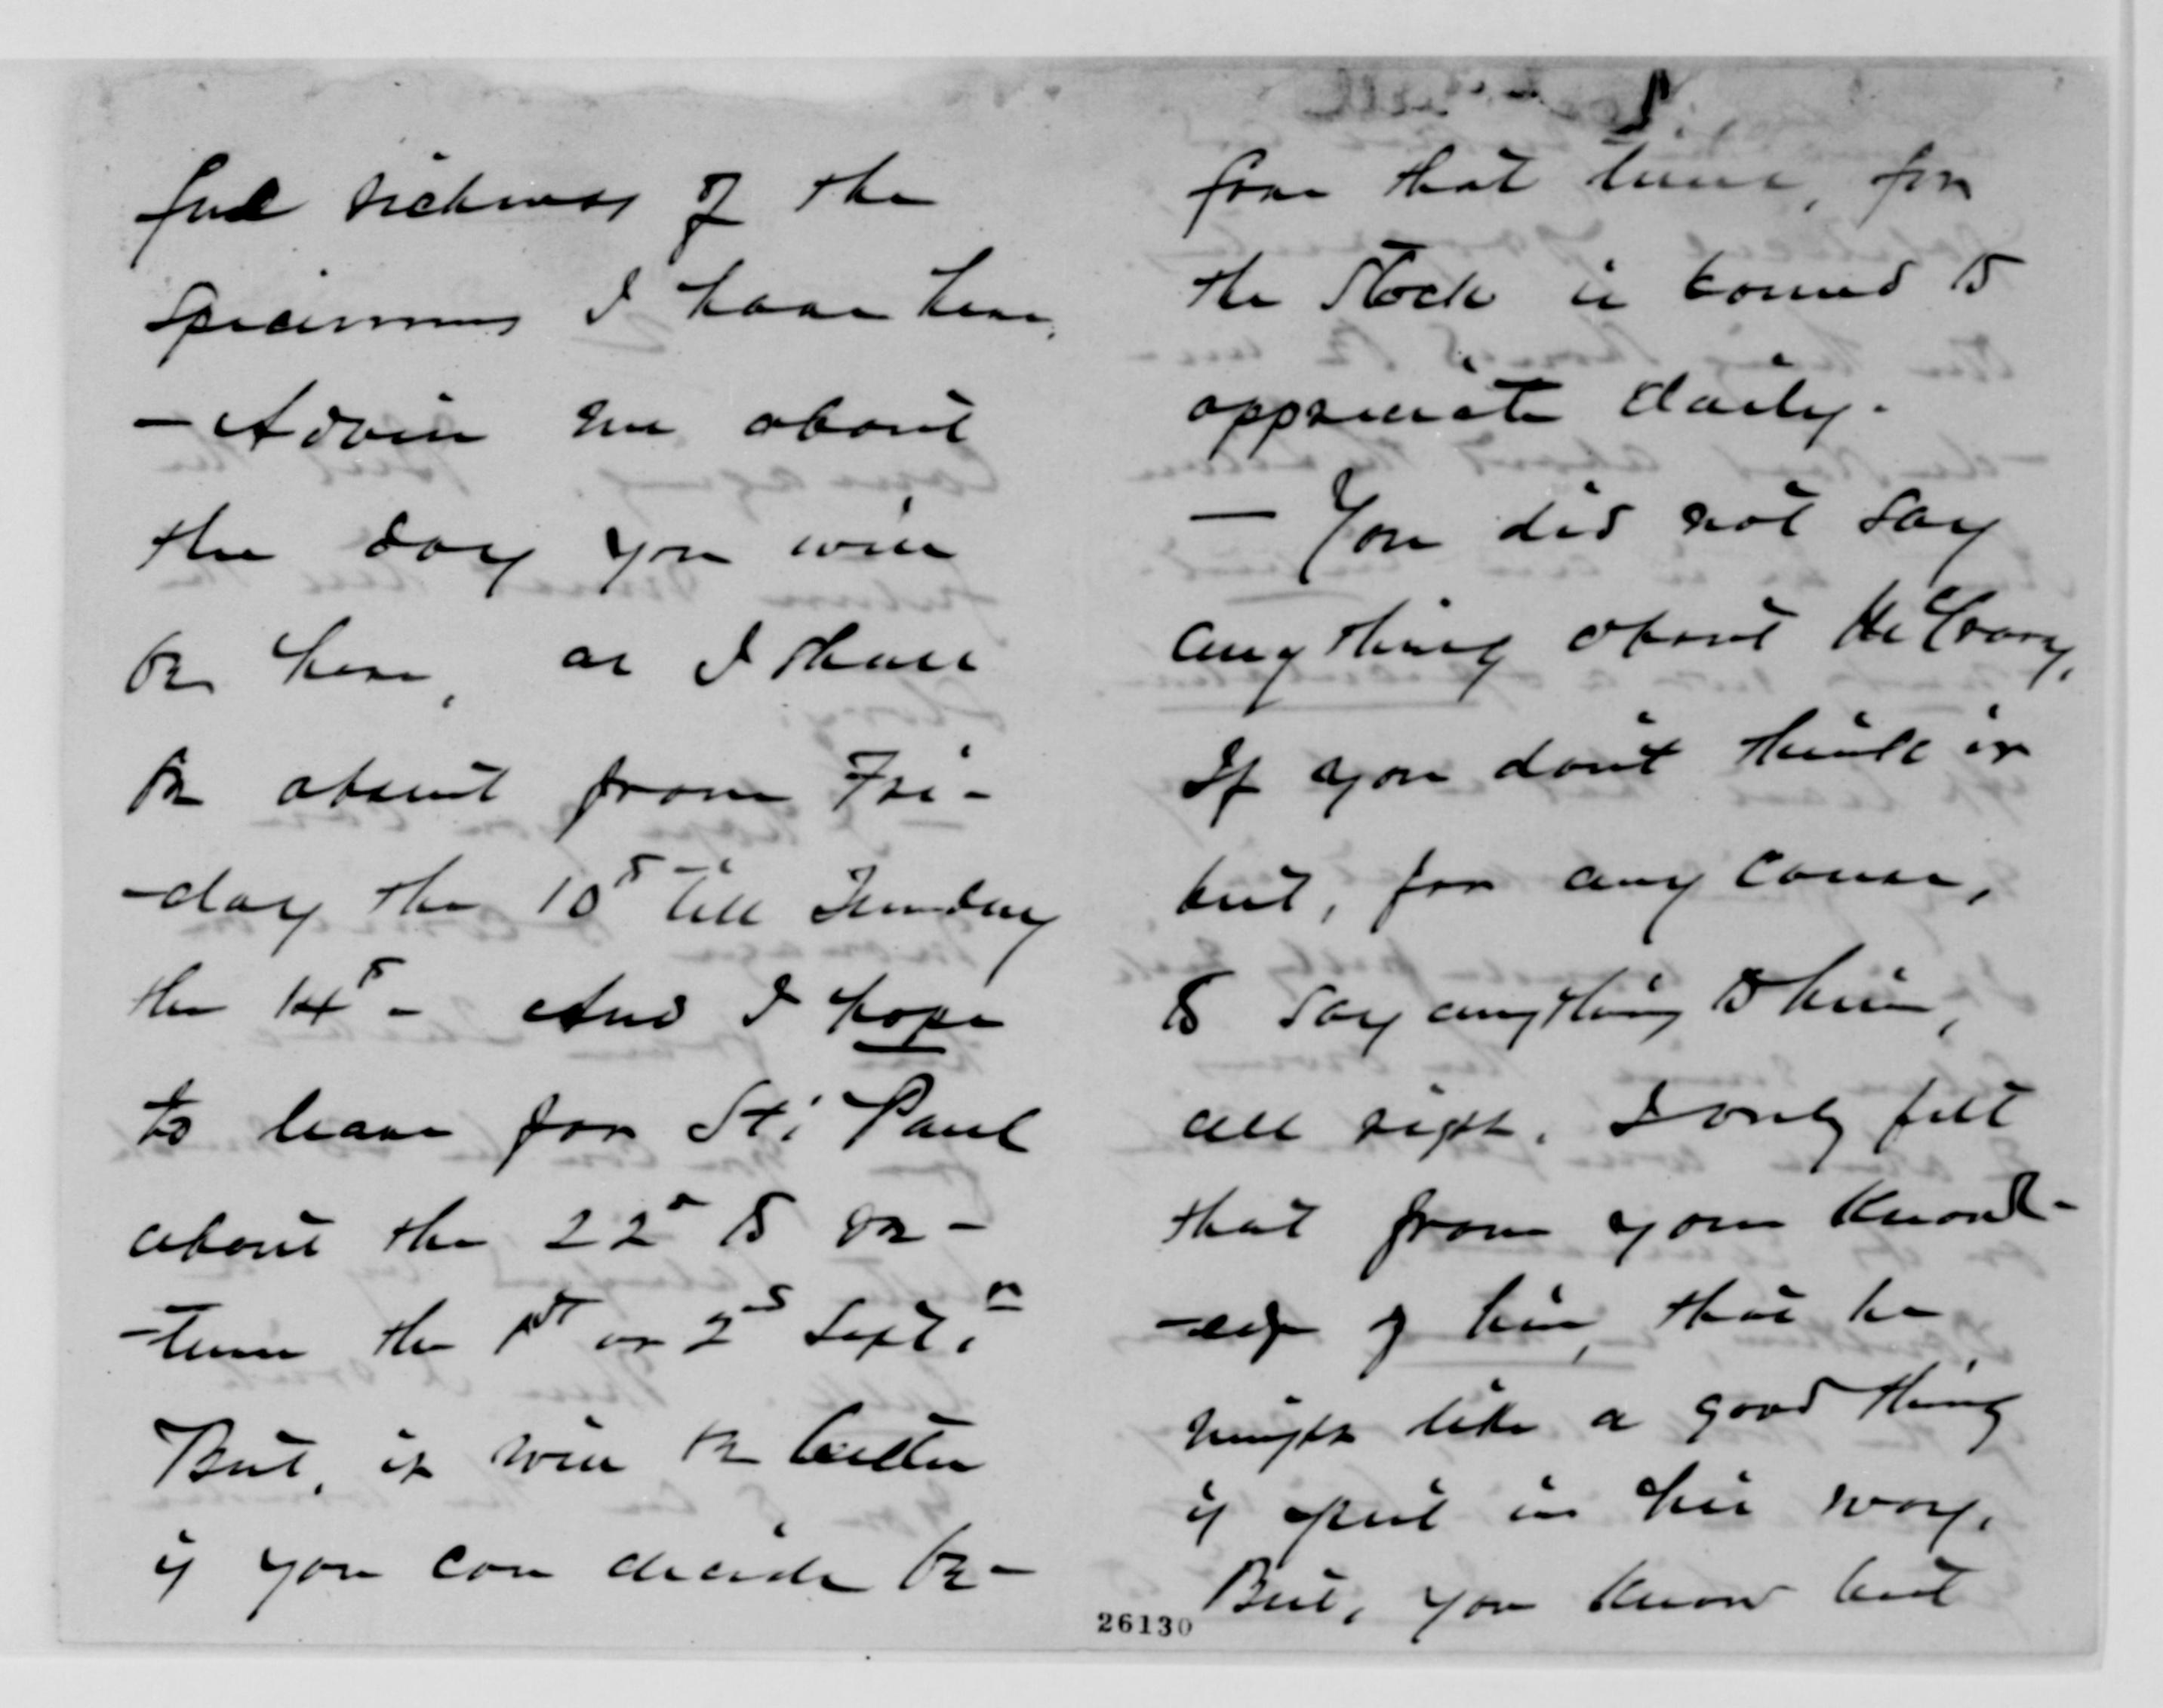 ful richness of the
specimens I have here.
- Advise me about
the day you will
be here, as I shall
be absent from Fri-
-day the 10th till Tuesday
the 14th - And I hope
to leave for St. Paul
about the 22d to re-
-turn the 1st or 2d Sept.
But, it will be better
if you can decide be-
fore that time, for
the Stock is bound to
appreciate daily.
- You did not say
anything about McCrary,
If you don't think it
best, for any cause,
to say anything to him,
all right. I only felt
that from your knowl-
-edge of him, that he
might like a good thing
if put in his way.
But, you know best
26130